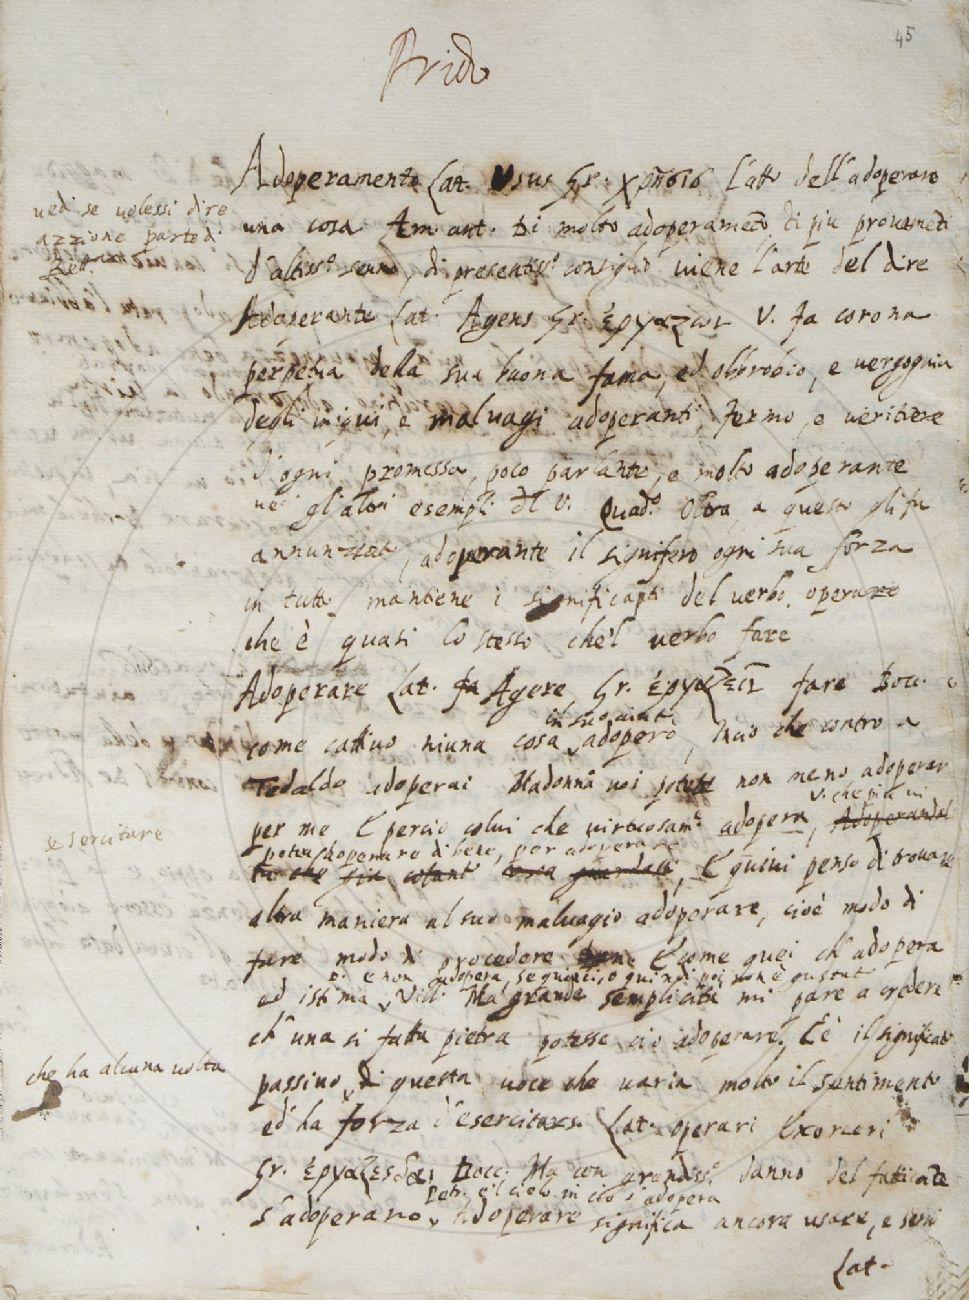 45
Adoperamento Lat. Usus Gr. χρῆσις l'atto dell'adoperare
vedi se volessi dire
azzione parte di
Red.
una cosa Am. ant. Di molto adoperamento, di più
d'altiss.o senno, di presentiss.o consiglio viene l'arte del dire
Adoperante Lat. Agens Gr. ἐργαζων V. fa corona
perpetua della sua buona fama, ed obbrobrio, e vergognia
degli iniqui, e malvagi adoperanti, fermo, e veritiere
d'ogni promessa, poco parlante, e molto adoperante
ve' gl'altri esempli del V. Quad.o Oltra a questo gli fu
annunziato, adoperante il signifero ogni sua forza
in tutto mantiene i significati del verbo operare
che è quasi lo stesso che'l verbo fare
Adoperare Lat. Agere Gr. ἐργαζειν fare Bocc.
come cattivo niuna cosa adoperò, ciò che contro a
Tedaldo adoperai Madonna voi potete non meno adoperar
V. che più vi
per me E perciò colui che virtuosam.e adopera, Adoperando
esercitare
potea adoperare di bene, per adoperare
che già cotanto guardati, E quivi pensò di trovare
altra maniera al suo malvagio adoperare, cioè modo di
fare modo di procedere E come quei ch'adopera
ed istima Ma grande semplicità mi pare a credere
ch'una si fatta pietra potesse ciò adoperare. E è il significato
che ha alcuna volta
passivo di questa voce che varia molto il sentimento
ed ha forza d'esercitarsi Lat. operari Exerceri
Gr. ἐργαζεσθαι Bocc. Ma con grandiss.o danno del faticante
Petr. e'l cielo in ciò s'adopera
s'adoperano, Adoperare significa ancora usare, e
Lat.